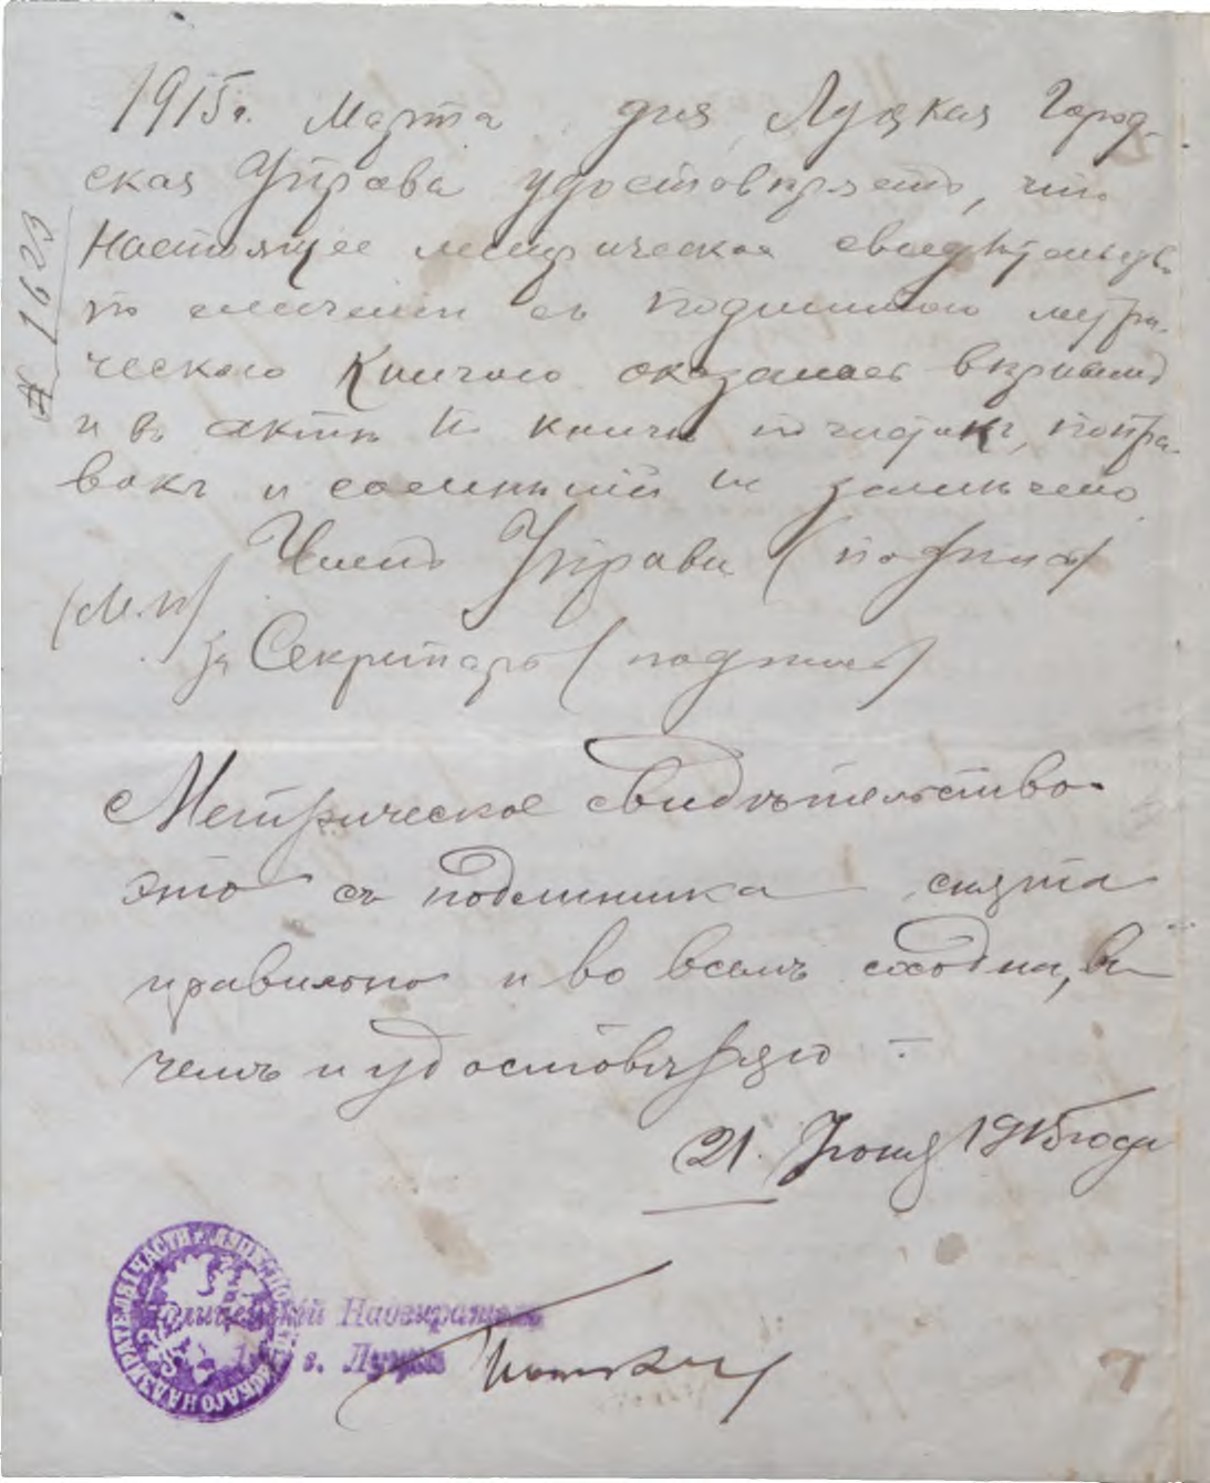 1915г. Марта дня Луцкая Город-
ская Управа удостовѣряетъ, что
настоящее метрическое свидѣтельство
по сличеніи съ подлинною метри-
ческою книгою оказалось вѣрнымъ
и въ актѣ и книгѣ подчистокъ, поправ-
вокъ и сомнѣній не замѣчено
Членъ Управы (подпись)
(М.П.)
за Секретаря (подпись)
№ 1623
Метрическое свидѣтельство
это съ подлинника снята
правильно и во всемъ сходна, въ
чемъ и удостовѣряю
21. Іюня 1915 года
Полицейскій Надзиратель
1 ч. г. Луцка